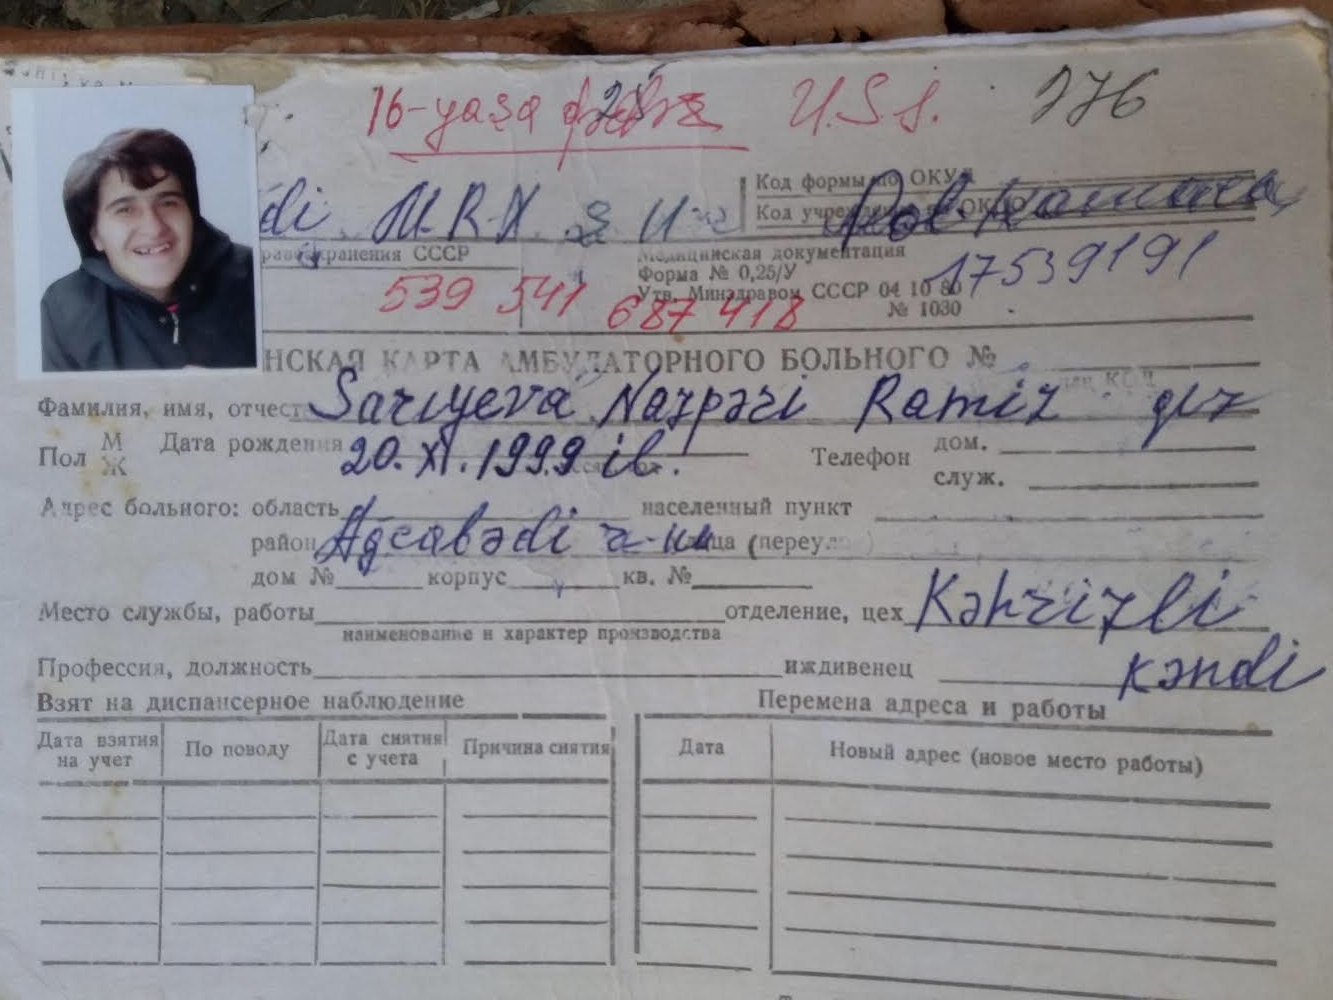 16-yaşa U.S.Ş. 276
di M.R.X
Код формы по ОКУД
Код учреждения по ОКПО
равоохранения СССР
Медицинская документация
Форма № 0,25/У
Утв. Минздравом СССР 04 10 80
№ 1030
17539191
539 541 687 418
НСКАЯ КАРТА АМБУЛАТОРНОГО БОЛЬНОГО №
Фамилия, имя, отчест Sarıyeva Nazpəri Ramiz qız
Пол М Ж Дата рождения 20.XI.1999 il. Телефон дом.
служ.
Адрес больного: область населенный пункт
район Ağcabədi r-nu ица (переул )
дом № корпус кв. №
Место службы, работы отделение, цех Kəhrizli
наименование и характер производства
Профессия, должность иждивенец kəndi
Взят на диспансерное наблюдение Перемена адреса и работы
Дата взятия на учет По поводу Дата снятия с учета Причина снятия Дата Новый адрес (новое место работы)